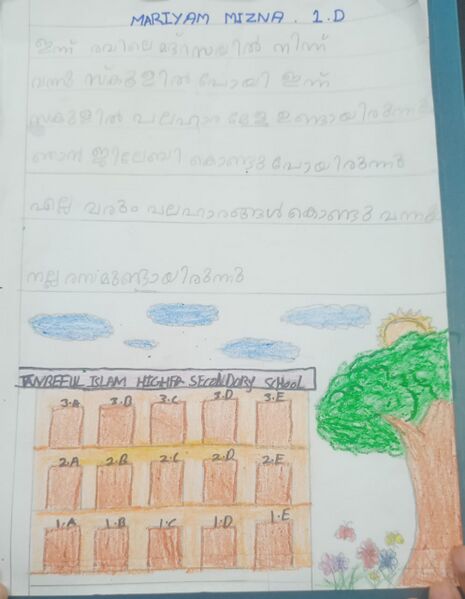 MARIYAM MIZNA. 1.D
ഇന്ന് രവിലെ മദ്റസയിൽ നിന്ന്
വന്നു സ്കൂളിൽ പോയി ഇന്ന്
സ്കൂളിൽ പലഹാര മേള ഉണ്ടായിരുന്നു
ഞാൻ ജിലേബി കൊണ്ടു പോയിരുന്നു
എല്ലവരും പലഹാരങ്ങൾ കൊണ്ടു വന്നു
നല്ല രസമുണ്ടായിരുന്നു
ISLAM HIGHER SECONDORY SCHOOL
3.A 3.B 3.C 3.D 3.E
2.A 2.B 2.C 2.D 2.E
1.A 1.B 1.C 1.D 1.E